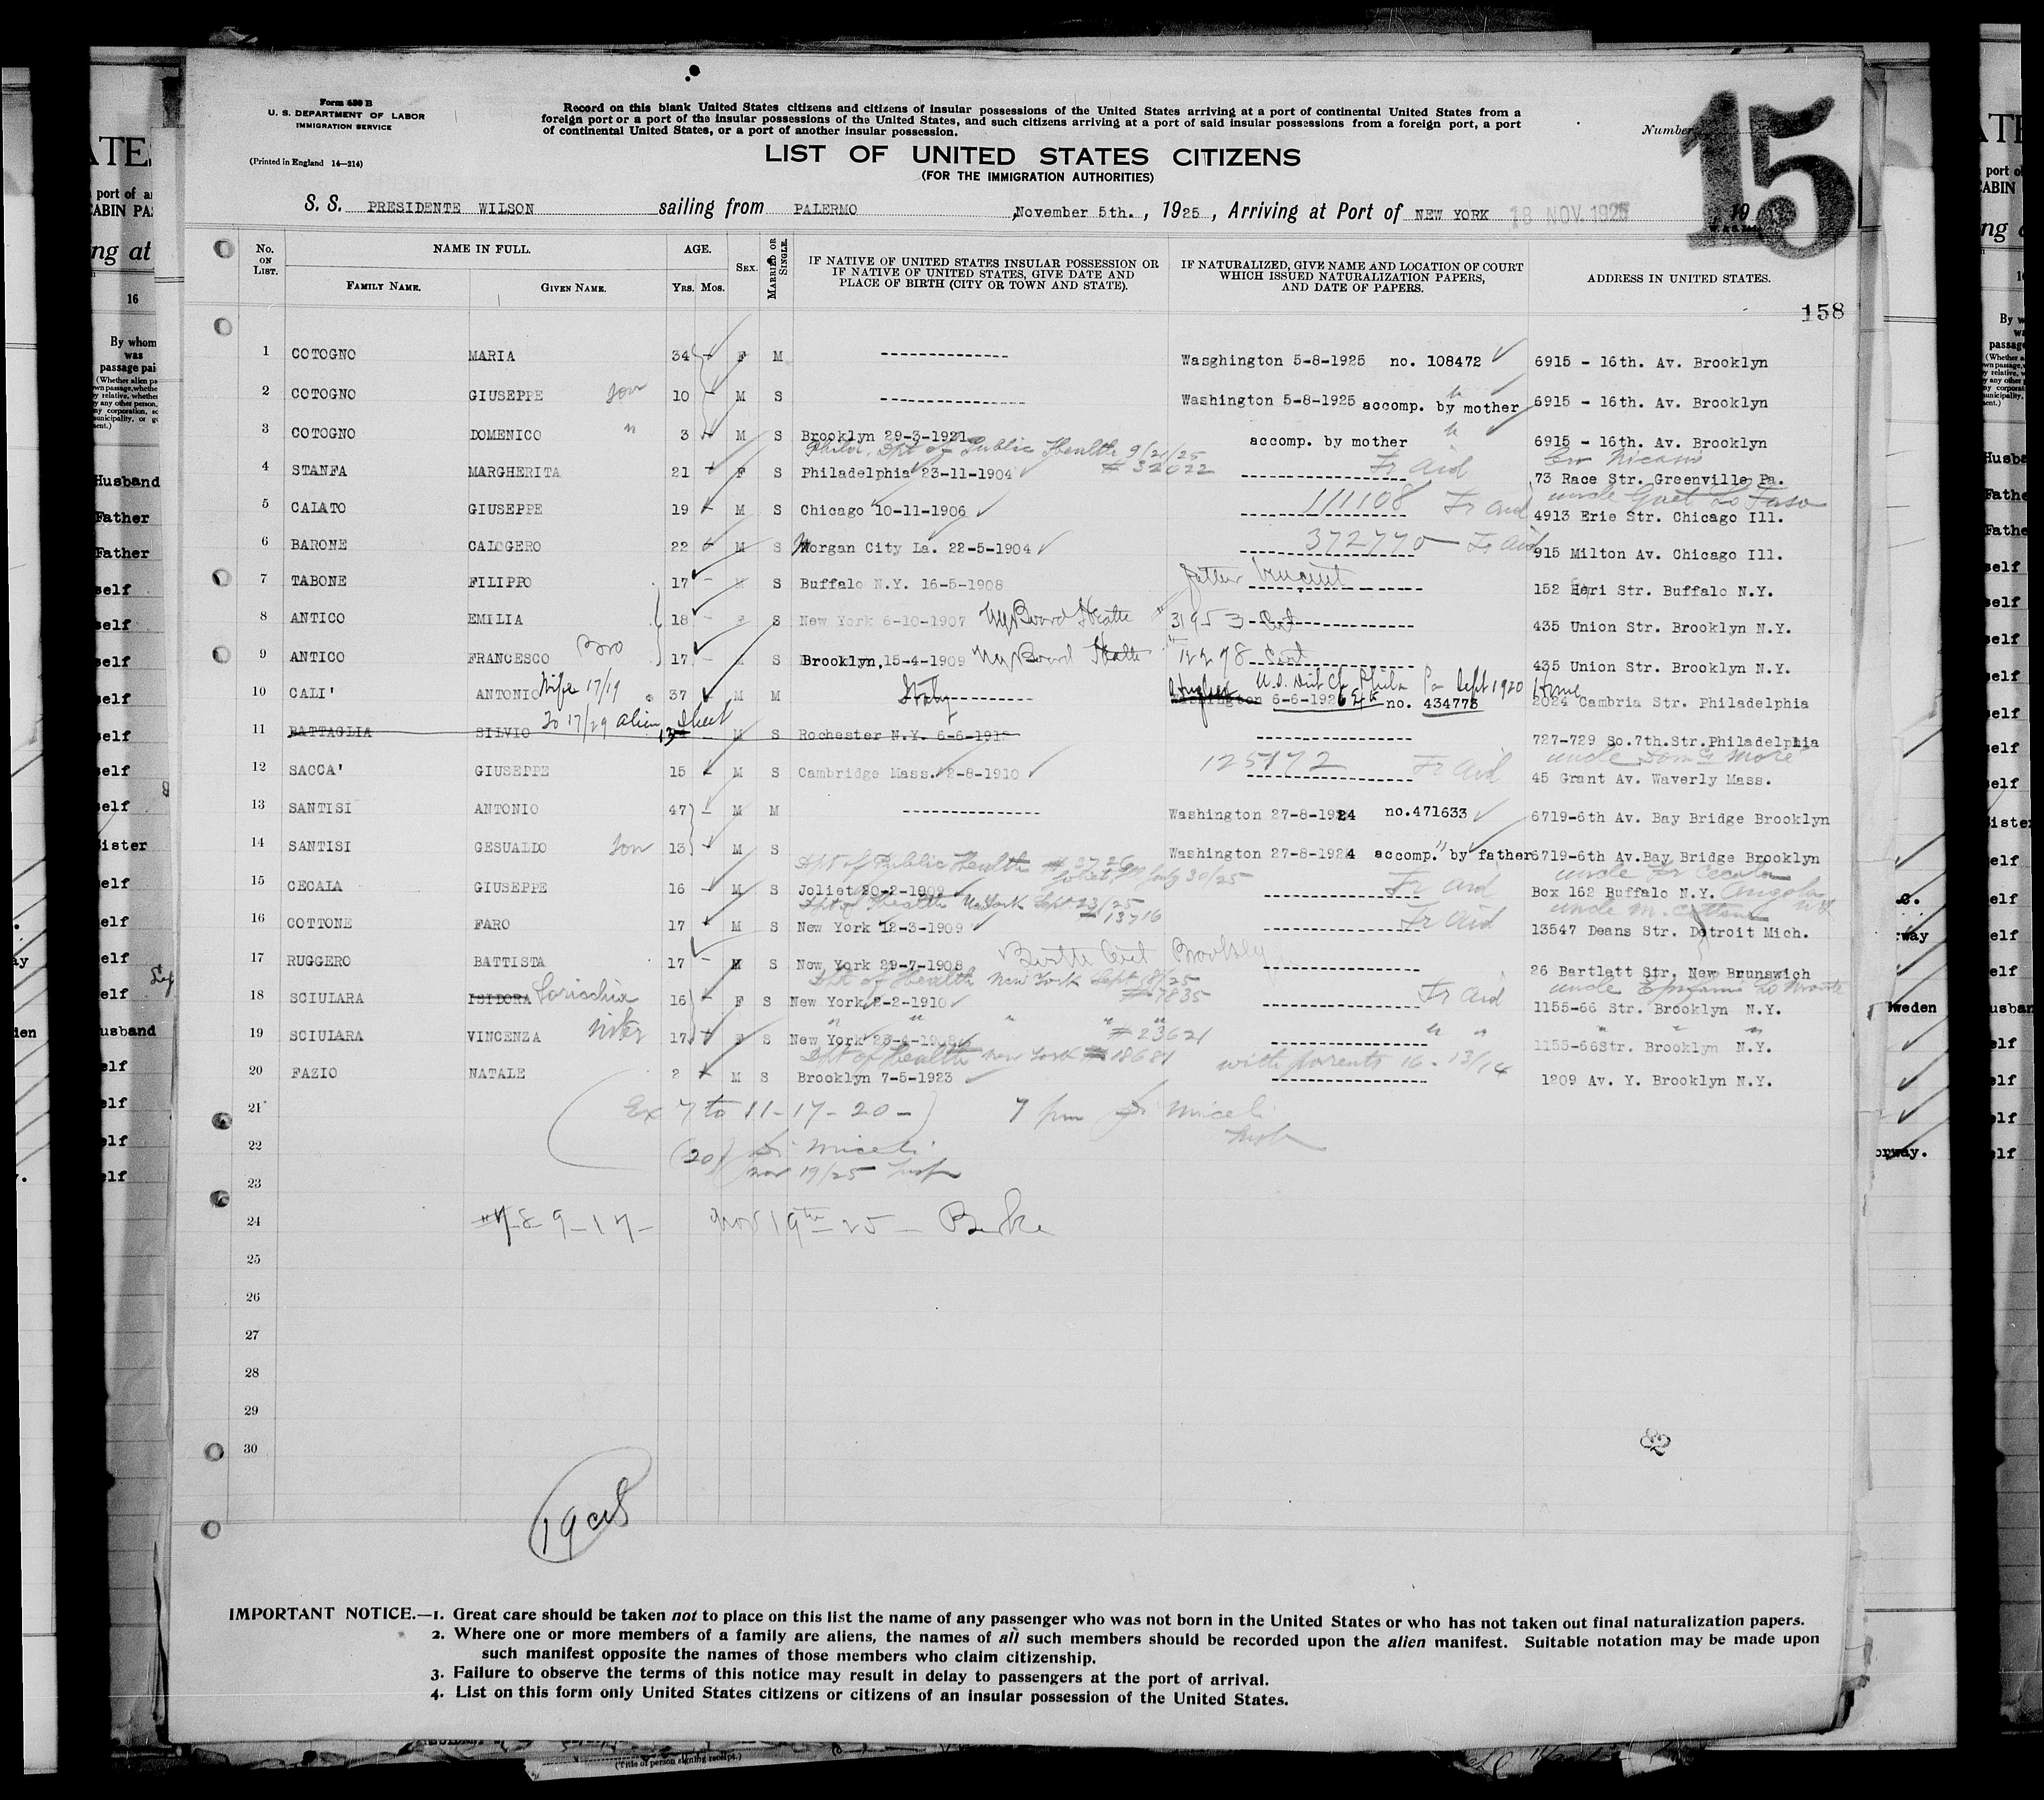 Form 630 B
U. S. DEPARTMENT OF LABOR
IMMIGRATION SERVICE
(Printed in England 14—214)
Record on this blank United States citizens and citizens of insular possessions of the United States arriving at a port of continental United States from a
foreign port or a port of the insular possessions of the United States, and such citizens arriving at a port of said insular possessions from a foreign port, a port
of continental United States, or a port of another insular possession.
Number 15
LIST OF UNITED STATES CITIZENS
(FOR THE IMMIGRATION AUTHORITIES)
S. S. PRESIDENTE WILSON sailing from PALERMO November 5th., 1925, Arriving at Port of NEW YORK 18 NOV. 1925 19
No. ON LIST. NAME IN FULL. FAMILY NAME. GIVEN NAME. AGE. Yrs. Mos. SEX. MARRIED OR SINGLE. IF NATIVE OF UNITED STATES INSULAR POSSESSION OR IF NATIVE OF UNITED STATES, GIVE DATE AND PLACE OF BIRTH (CITY OR TOWN AND STATE). IF NATURALIZED, GIVE NAME AND LOCATION OF COURT WHICH ISSUED NATURALIZATION PAPERS, AND DATE OF PAPERS. ADDRESS IN UNITED STATES.
158
1 COTOGNO MARIA 34 F M Wasghington 5-8-1925 no. 108472 6915 - 16th. Av. Brooklyn
2 COTOGNO GIUSEPPE son 10 M S Washington 5-8-1925 accomp. by mother 6915 - 16th. Av. Brooklyn
3 COTOGNO DOMENICO " 3 M S Brooklyn 29-3-1921 accomp. by mother 6915 - 16th. Av. Brooklyn
Phila. Dpt of Public Health 9/21/25 # 32022 Fr Aid
4 STANFA MARGHERITA 21 F S Philadelphia 23-11-1904 73 Race Str. Greenville Pa.
5 CALATO GIUSEPPE 19 M S Chicago 10-11-1906 111108 Fr Aid uncle 4913 Erie Str. Chicago Ill.
6 BARONE CALOGERO 22 M S Morgan City La. 22-5-1904 372770 Fr Aid 915 Milton Av. Chicago Ill.
7 TABONE FILIPPO 17 M S Buffalo N.Y. 16-5-1908 father Vincent 152 Str. Buffalo N.Y.
8 ANTICO EMILIA 18 F S New York 6-10-1907 NY Board Health 31953 Cert 435 Union Str. Brooklyn N.Y.
9 ANTICO FRANCESCO Bro 17 M S Brooklyn, 15-4-1909 NY Board Health 12278 Cert 435 Union Str. Brooklyn N.Y.
10 CALI' ANTONIO Wife 17/19 37 M M Italy U.S. Dist Ct Phila Pa Sept 1920 Washington 6-6-192 no. 434773 Home 2024 Cambria Str. Philadelphia
11 BATTAGLIA SILVIO To 17/29 alien Sheet 13 M S Rochester N.Y. 6-6-1912 727-729 So.7th.Str.Philadelphia
12 SACCA' GIUSEPPE 15 M S Cambridge Mass. 2-8-1910 125172 Fr Aid uncle 45 Grant Av. Waverly Mass.
13 SANTISI ANTONIO 47 M M Washington 27-8-1924 no.471633 6719-6th Av. Bay Bridge Brooklyn
14 SANTISI GESUALDO son 13 M S Washington 27-8-1924 accomp. by father 6719-6th Av.Bay Bridge Brooklyn
Dpt of Public Health # 3726 Joliet, Ill July 30/25 uncle Fr Cecala
15 CECALA GIUSEPPE 16 M S Joliet 20-2-1909 Fr Aid Box 162 Buffalo N.Y. Angola NY
Dpt of Health New York Sept 23/25 13716 uncle M. Cottone
16 COTTONE FARO 17 M S New York 12-3-1909 Fr Aid 13547 Deans Str. Detroit Mich.
17 RUGGERO BATTISTA 17 M S New York 29-7-1908 Birth Cert Brooklyn 26 Bartlett Str. New Brunswich
Dpt of Health New York Sept 18/25 # 7835 uncle
18 SCIULARA ISIDORA 16 F S New York 2-2-1910 Fr Aid 1155-66 Str. Brooklyn N.Y.
19 SCIULARA VINCENZA sister 17 F S New York 23-4-1908 # 23621 " " 1155-66Str. Brooklyn N.Y.
Dpt of Health New York # 18681 with parents 16-13/14
20 FAZIO NATALE 2 M S Brooklyn 7-5-1923 1209 Av. Y. Brooklyn N.Y.
21 Ex 7 to 11-17-20- 7 pm Di Miceli
22 (20) Di Miceli
Nov 19/25 Insp
23
24 #7-8-9-17- Nov 19th - 25 - Burke
25
26
27
28
29
30
19
IMPORTANT NOTICE.—1. Great care should be taken not to place on this list the name of any passenger who was not born in the United States or who has not taken out final naturalization papers.
2. Where one or more members of a family are aliens, the names of all such members should be recorded upon the alien manifest. Suitable notation may be made upon
such manifest opposite the names of those members who claim citizenship.
3. Failure to observe the terms of this notice may result in delay to passengers at the port of arrival.
4. List on this form only United States citizens or citizens of an insular possession of the United States.
(Title of person signing receipt.)